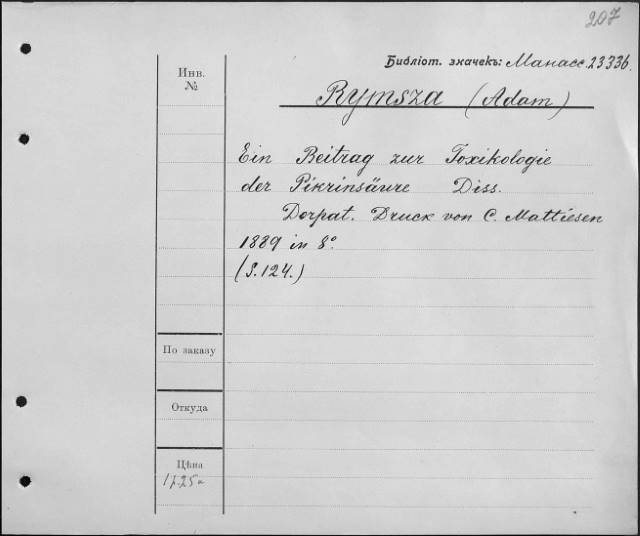 207
Библіот. значекъ: Манасс. 23336.
Инв.
№
Rymsza (Adam)
Ein Beitrag zur Toxikologie
der Pikrinsäure Diss.
Dorpat. Druck von C. Mattiesen
1889 in 8°
(S. 124.)
По заказу
Откуда
Цѣна